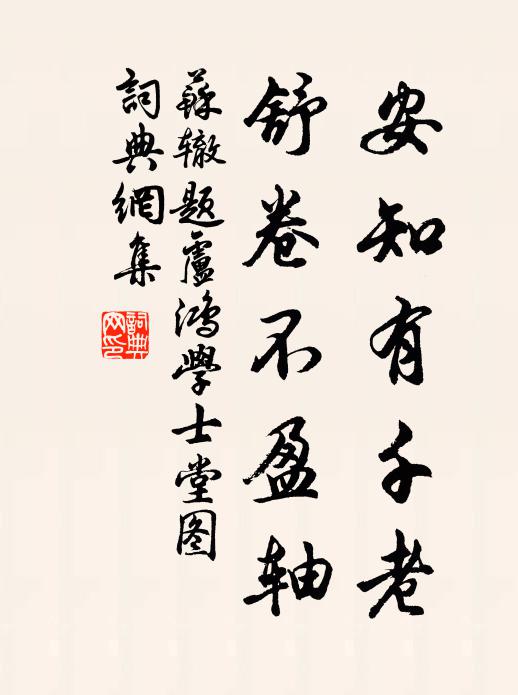 安知有千老
舒卷不盈轴
蘇辙题盧鴻學士堂图
詞典網集
詞典网印